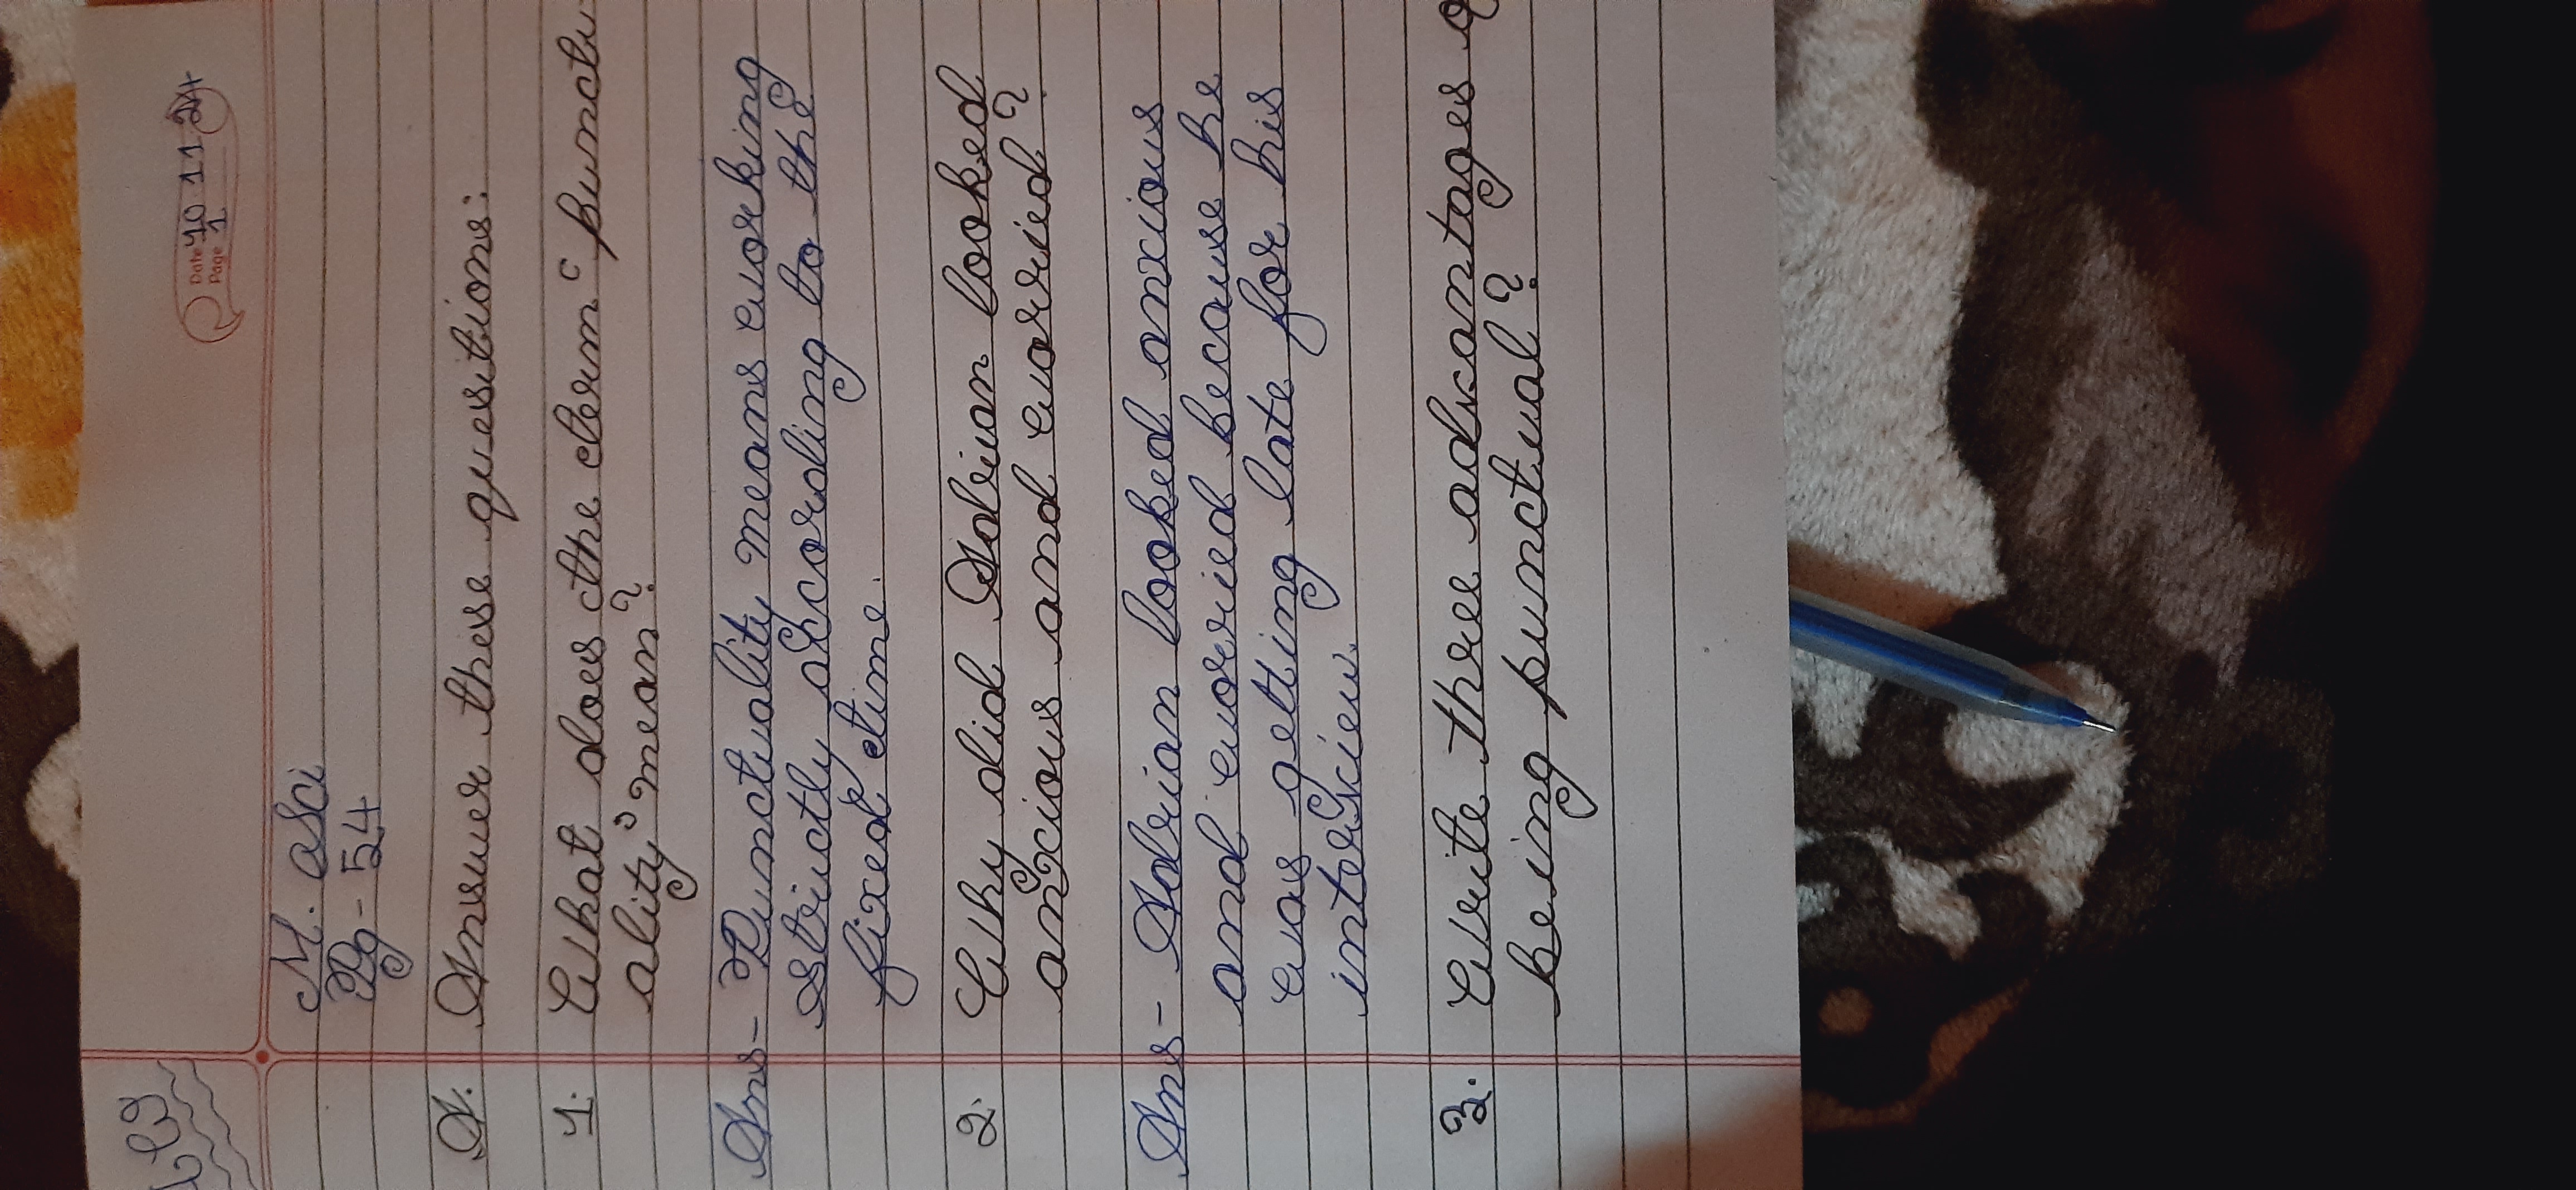 Date 10 11 24
Page 1
M. Sci
Pg - 54
A. Answer these quesitions:
1. What does the term ' puncti-
ality' mean?
Ans- Punctuality means working
strictly according to the
fixed time.
2. Why did Adrian looked
anxious and worried?
Ans- Adrian looked anxious
and worried because he
was getting late for his
interview.
3. Write three advantages of
being punctual?